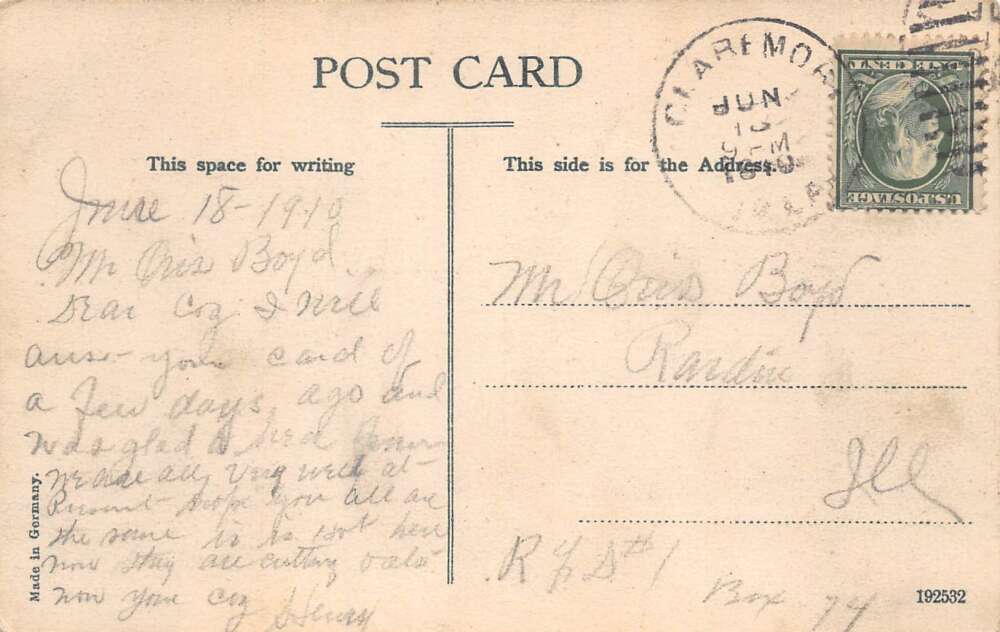 POST CARD
This space for writing
This side is for the Address.
CLAREMORE
JUN
9 PM
1910
OKLA
U.S. POSTAGE
ONE CENT
June 18-1910
Mr Cris Boyd
Dear Coz I will
anse your card of
a few days ago and
was glad to hed from
we are all very well at
Present hope you all are
the same is is Hot here
now they are cutting oats
now your coz Henry
Mr Cris Boyd
Rardin
Ill
R F D #1
Box 74
Made in Germany.
192532